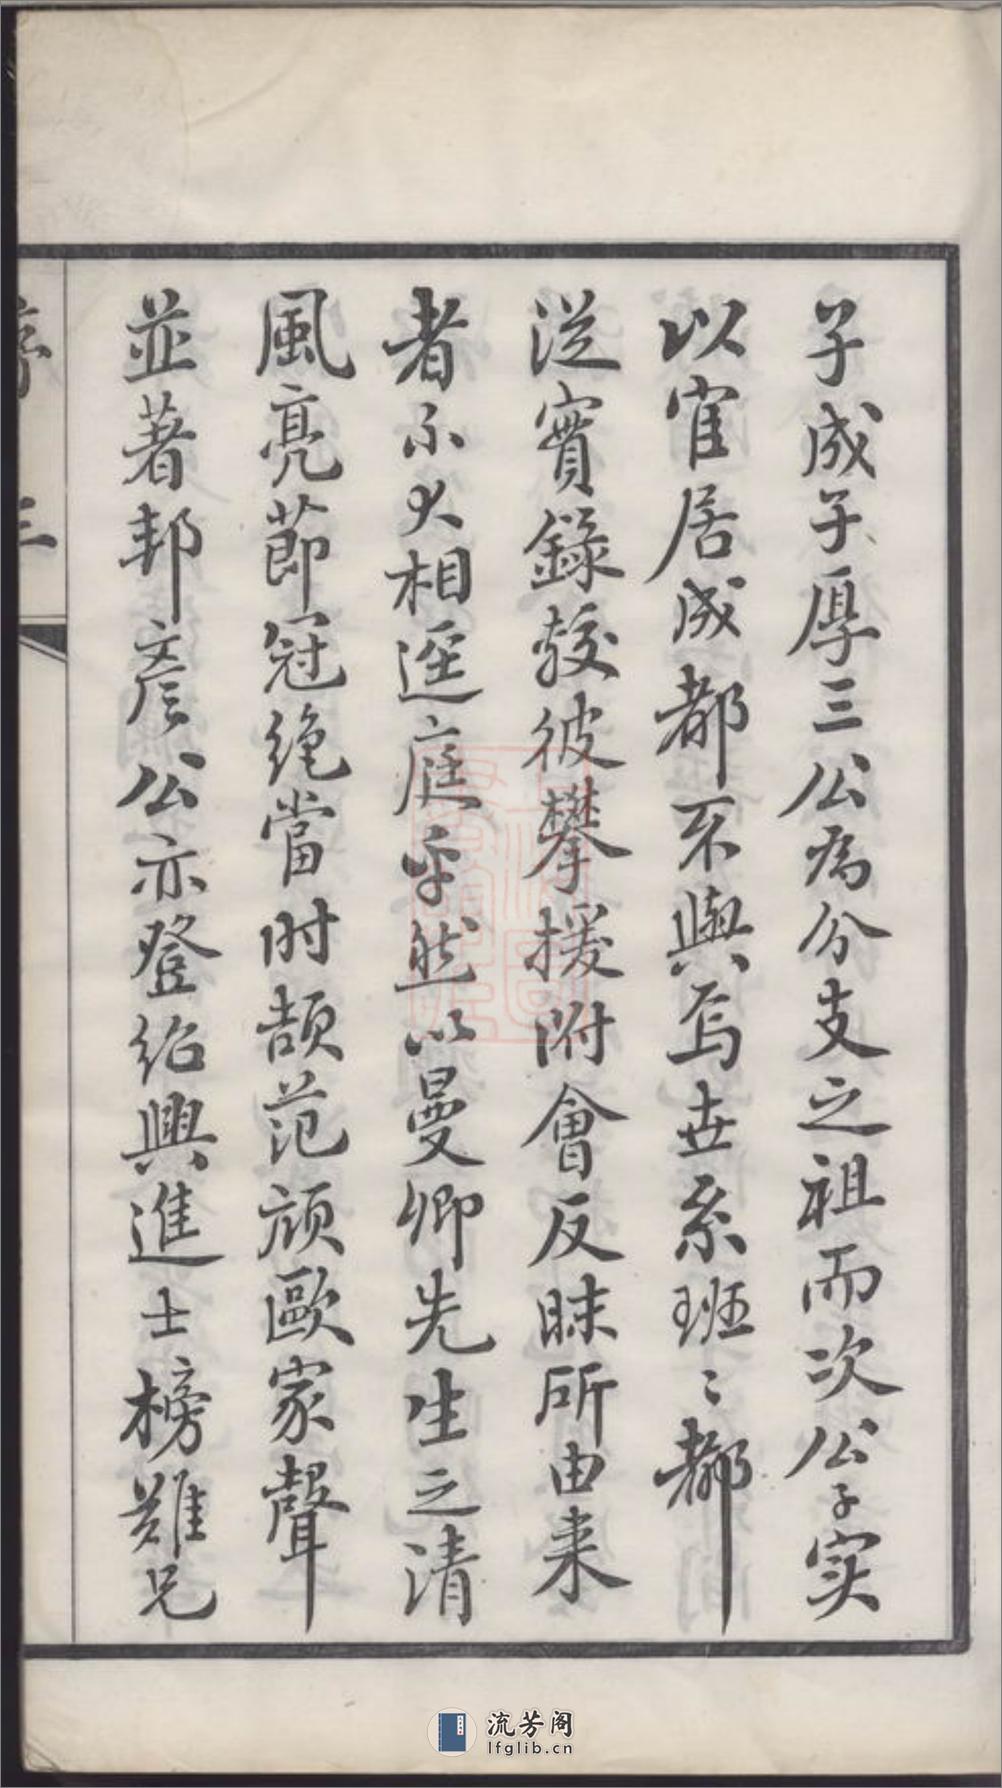 子成子厚三公為分支之祖而次公子实
以官居成都不與焉世系班〻都
從實錄較彼攀援附會反昧所由来
者不大相逕庭乎然以曼卿先生之清
風亮節冠絶當时頡范頏歐家聲
並著邦彥公亦登紹興進士榜難兄
序 三
流芳阁
lfglib.cn